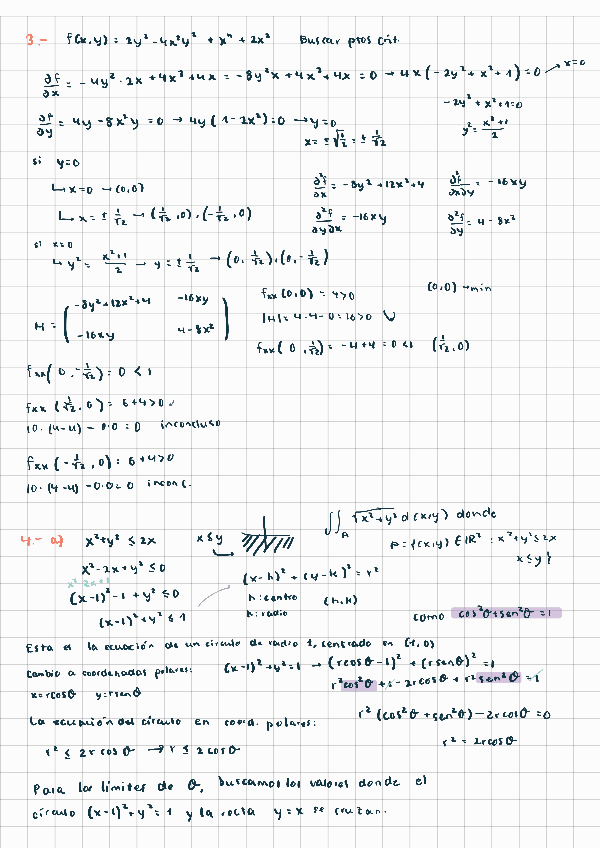 3.- f(x,y) = 2y² - 4x²y² + x⁴ + 2x² Buscar ptos crit.
∂f/∂x = -4y²·2x + 4x³ + 4x = -8y²x + 4x³ + 4x = 0 → 4x(-2y² + x² + 1) = 0 → x=0
-2y² + x² + 1 = 0
∂f/∂y = 4y - 8x²y = 0 → 4y(1 - 2x²) = 0 → y = 0
x = ± √1/2 = ± 1/√2
y² = x²+1/2
si y=0
↳ x=0 → (0,0)
∂²f/∂x = -8y² + 12x² + 4 ∂²f/∂x∂y = -16xy
↳ x = ± 1/√2 → (1/√2, 0), (-1/√2, 0)
∂²f/∂y∂x = -16xy ∂²f/∂y = 4 - 8x²
si x=0
↳ y² = x²+1/2 → y = ± 1/√2 → (0, 1/√2), (0, -1/√2)
H = ( -8y²+12x²+4 -16xy
-16xy 4-8x² )
fxx(0,0) = 4>0 (0,0) → min
|H| = 4·4-0 = 16>0 ∪
fxx(0, 1/√2) = -4+4 = 0 <1 (1/√2, 0)
fxx(0, -1/√2) = 0 < 1
fxx(1/√2, 0) = 6+4>0
10·(4-4) - 0·0 = 0 inconcluso
fxx(-1/√2, 0) = 6+4>0
10·(4-4) - 0·0 = 0 inconc.
4.- a) x²+y² ≤ 2x x≤y
∬_A √x²+y² d(x,y) donde
A = {(x,y) ∈ ℝ² : x²+y² ≤ 2x
x ≤ y}
x² - 2x + y² ≤ 0
x²-2x+1
(x-1)² - 1 + y² ≤ 0
(x-1)² + y² ≤ 1
(x-h)² + (y-k)² = r²
h: centro (h,k)
h: radio
como cos²θ+sen²θ = 1
Esta es la ecuación de un círculo de radio 1, centrado en (1,0)
Cambio a coordenadas polares: (x-1)² + y² = 1 → (rcosθ-1)² + (rsenθ)² = 1
x=rcosθ y=rsenθ
r²cos²θ + 1 - 2rcosθ + r²sen²θ = 1
r²(cos²θ + sen²θ) - 2rcosθ = 0
La ecuación del círculo en coord. polares:
r² = 2rcosθ
r² ≤ 2r cosθ → r ≤ 2cosθ
Para los límites de θ, buscamos los valores donde el
círculo (x-1)² + y² = 1 y la recta y=x se cruzan.